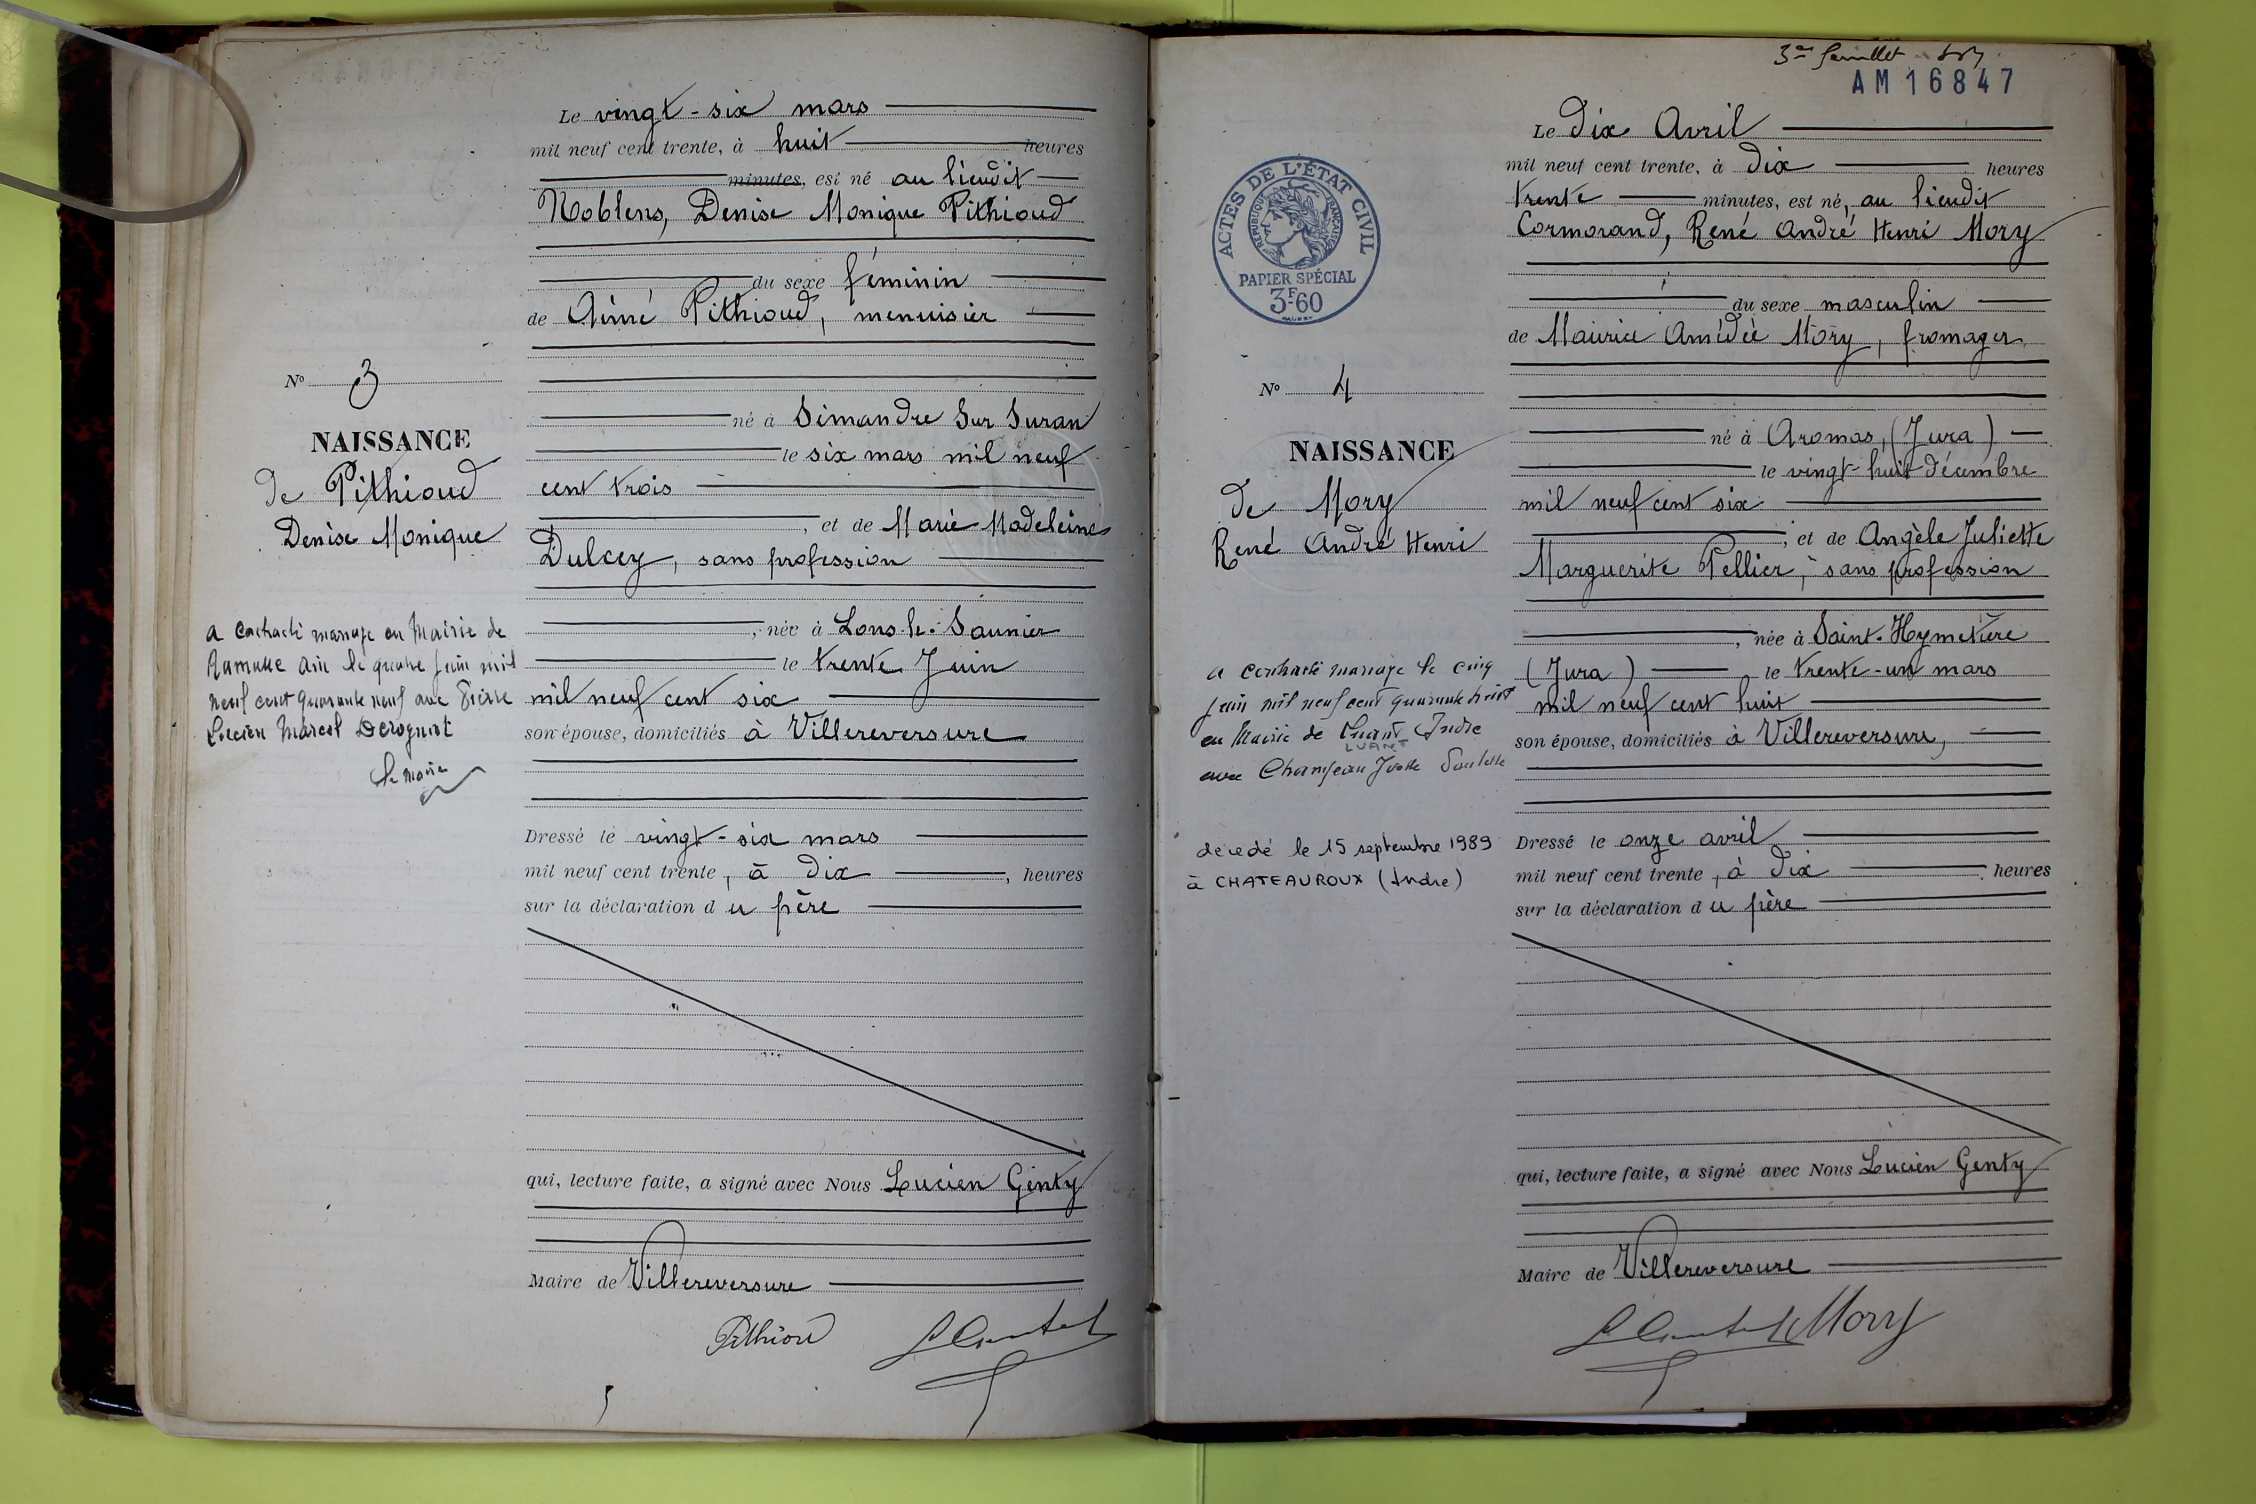 Le vingt-six mars
mil neuf cent trente, à huit heures
minutes, est né au lieudit
Noblens, Denise Monique Pithioud
du sexe féminin
de Aimé Pithioud, menuisier
né à Simandre sur Suran
le six mars mil neuf
cent trois
, et de Marie Madeleine
Dulcey, sans profession
, née à Lons-le-Saunier
le trente Juin
mil neuf cent six
son épouse, domiciliés à Villereversure
Dressé le vingt-six mars
mil neuf cent trente, à dix, heures
sur la déclaration du père
qui, lecture faite, a signé avec Nous Lucien Genty
Maire de Villereversure
Pithioud
No 3
NAISSANCE
de Pithioud
Denise Monique
a contracté mariage en Mairie de
Ramasse Ain le quatre juin mil
neuf cent quarante neuf avec Pierre
Lucien Marcel
Le Maire
3me feuillet
AM 16847
Le dix Avril
mil neuf cent trente, à dix heures
trente minutes, est né, au lieudit
Cormorand, René André Henri Mory
du sexe masculin
de Maurice Amédée Mory, fromager
né à Aromas, (Jura)
le vingt-huit décembre
mil neuf cent six
, et de Angèle Juliette
Marguerite Pellier, sans profession
, née à Saint-Hymetière
(Jura) le trente-un mars
mil neuf cent huit
son épouse, domiciliés à Villereversure,
Dressé le onze avril
mil neuf cent trente, à dix heures
sur la déclaration du père
qui, lecture faite, a signé avec Nous Lucien Genty
Maire de Villereversure
Mory
ACTES DE L'ÉTAT CIVIL
RÉPUBLIQUE FRANÇAISE
PAPIER SPÉCIAL
3F60
No 4
NAISSANCE
de Mory
René André Henri
a contracté mariage le cinq
juin mil neuf cent quarante huit
en Mairie de Luant Indre
LUANT
avec Champeau Yvette Paulette
décédé le 15 septembre 1989
à CHATEAUROUX (Indre)